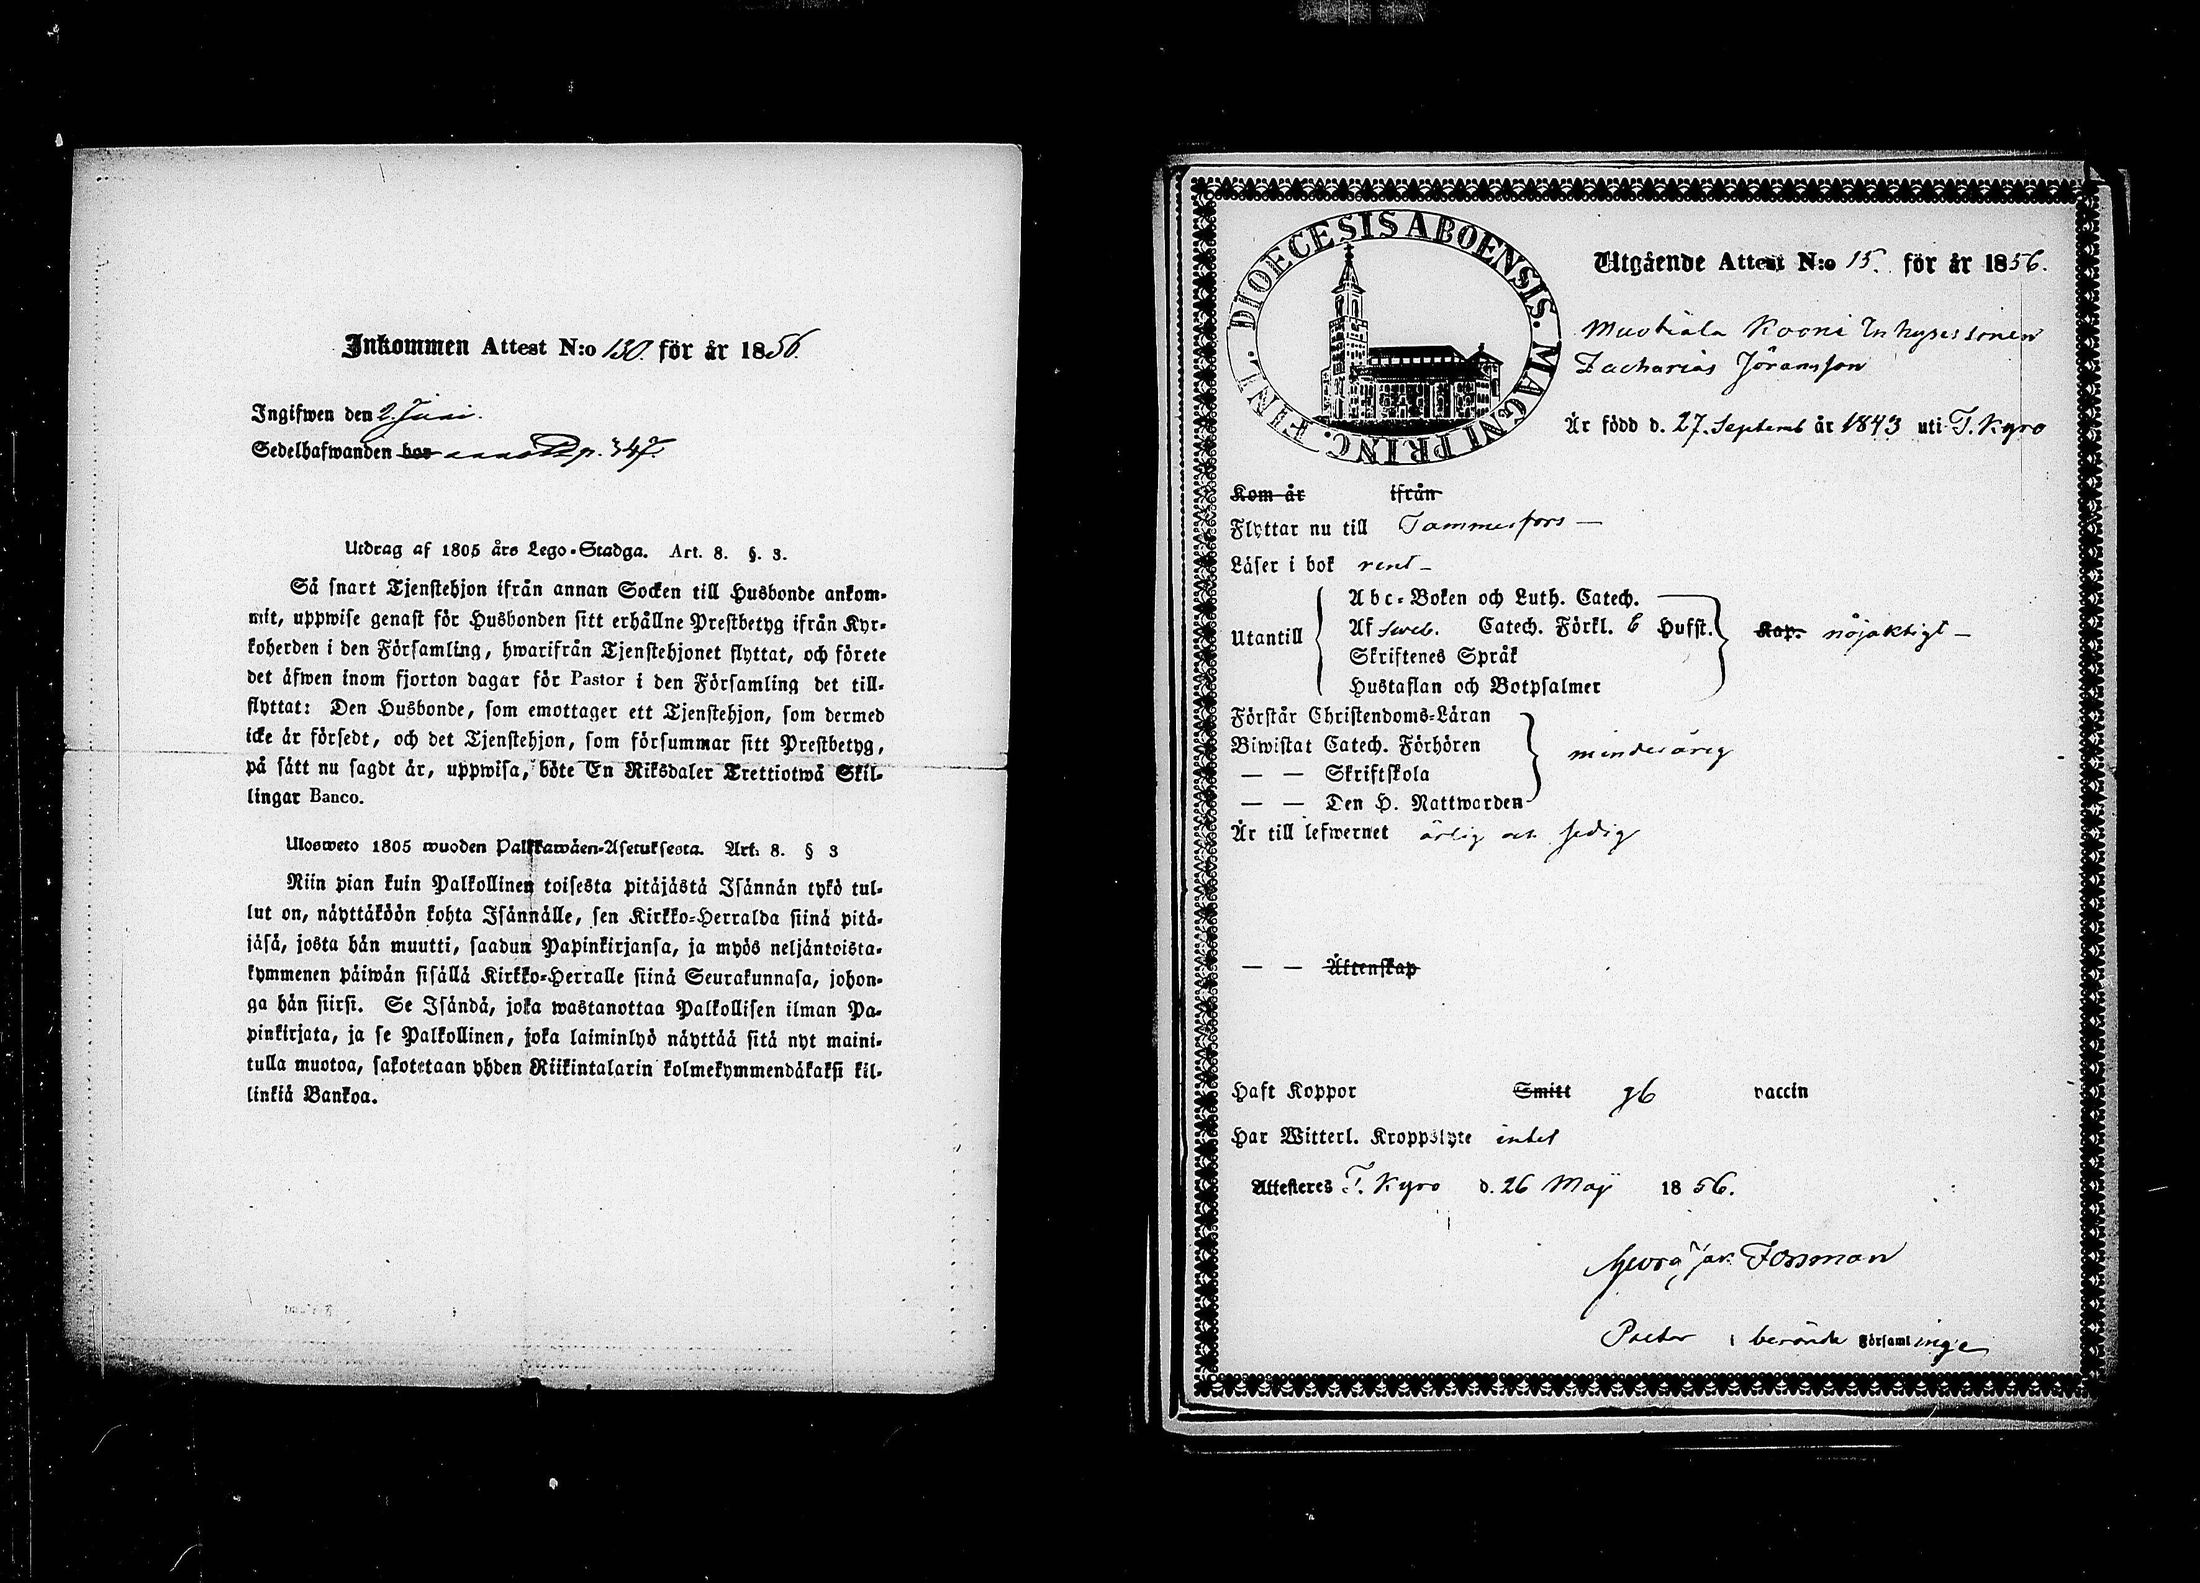 Inkommen Attest N:o 130. för år 1856.
Ingifwen den 2. Juni.
Sedelhafwanden bor p. 347.
Utdrag af 1805 års Lego-Stadga. Art. 8. §. 3.
Så snart Tjenstehjon ifrån annan Socken till Husbonde ankom-
mit, uppwise genast för Husbonden sitt erhållne Prestbetyg ifrån Kyr-
koherden i den Församling, hwarifrån Tjenstehjonet flyttat, och förete
det äfwen inom fjorton dagar för Pastor i den Församling det till-
flyttat: Den Husbonde, som emottager ett Tjenstehjon, som dermed
icke är försedt, och det Tjenstehjon, som försummar sitt Prestbetyg,
på sätt nu sagdt är, uppwisa, böte En Riksdaler Trettiotwå Skil-
lingar Banco.
Ulosweto 1805 wuoden Palkkawäen-Asetuksesta. Art. 8. § 3
Niin pian kuin Palkollinen toisesta pitäjästä Isännän tykö tul-
lut on, näyttäköön kohta Isännälle, sen Kirkko-Herralda siinä pitä-
jäsä, josta hän muutti, saadun Papinkirjansa, ja myös neljäntoista-
kymmenen päiwän sisällä Kirkko-Herralle siinä Seurakunnasa, johon-
ga hän siirsi. Se Isändä, joka wastanottaa Palkollisen ilman Pa-
pinkirjata, ja se Palkollinen, joka laiminlyö näyttää sitä nyt maini-
tulla muotoa, sakotetaan yhden Riikintalarin kolmekymmendäkaksi kil-
linkiä Bankoa.
DIOECESIS ABOENSIS. MAGNI PRINC. FINL.
Utgående Attest N:o 15. för år 1856.
Muotiala Kooni Inhyses sonen
Zacharias Jöransson
Är född d. 27. Septemb år 1843 uti T. Kyro
Kom år ifrån
Flyttar nu till Tammerfors —
Läser i bok rent —
Utantill
Abc-Boken och Luth. Catech.
Af Sveb. Catech. Förkl. 6 Hufst. Kap. nöjaktigt —
Skriftenes Språk
Hustaflan och Botpsalmer
Förstår Christendoms-Läran
Biwistat Catech. Förhören minderårig
— — Skriftskola
— — Den H. Nattwarden
Är till lefwernet ärlig och sedig
— — Äktenskap
Haft Koppor Smitt gb vaccin
Har Witterl. Kroppslyte intet
Attesteres T. Kyro d. 26 Maji 1856.
Georg Jak. Forsman
Pastor i berörde Församlinge